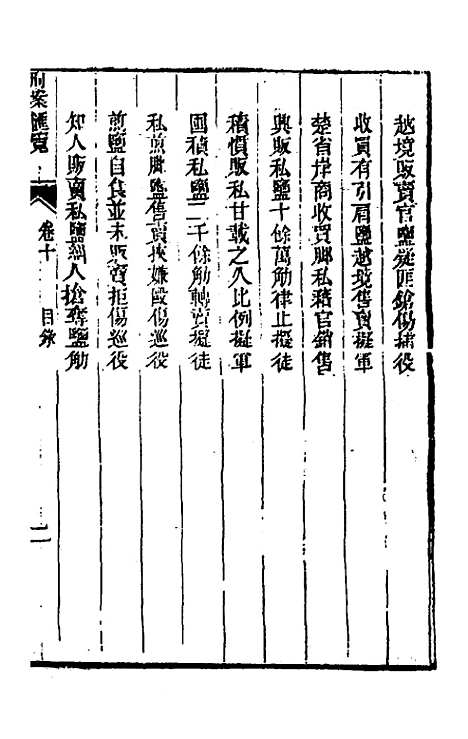 越境販賣官鹽疑匪鎗傷捕役
收買有引肩鹽越境售賣擬軍
楚省岸商收買脚私藉官銷售
興販私鹽十餘萬觔律止擬徒
積慣販私甘載之久比例擬軍
囤積私鹽二千餘觔轉賣擬徒
私煎硝鹽售賣挾嫌毆傷巡役
煎鹽自食並未販賣拒傷巡役
知人販賣私鹽糾人搶奪鹽觔
刑案匯覽 卷十 目錄 二